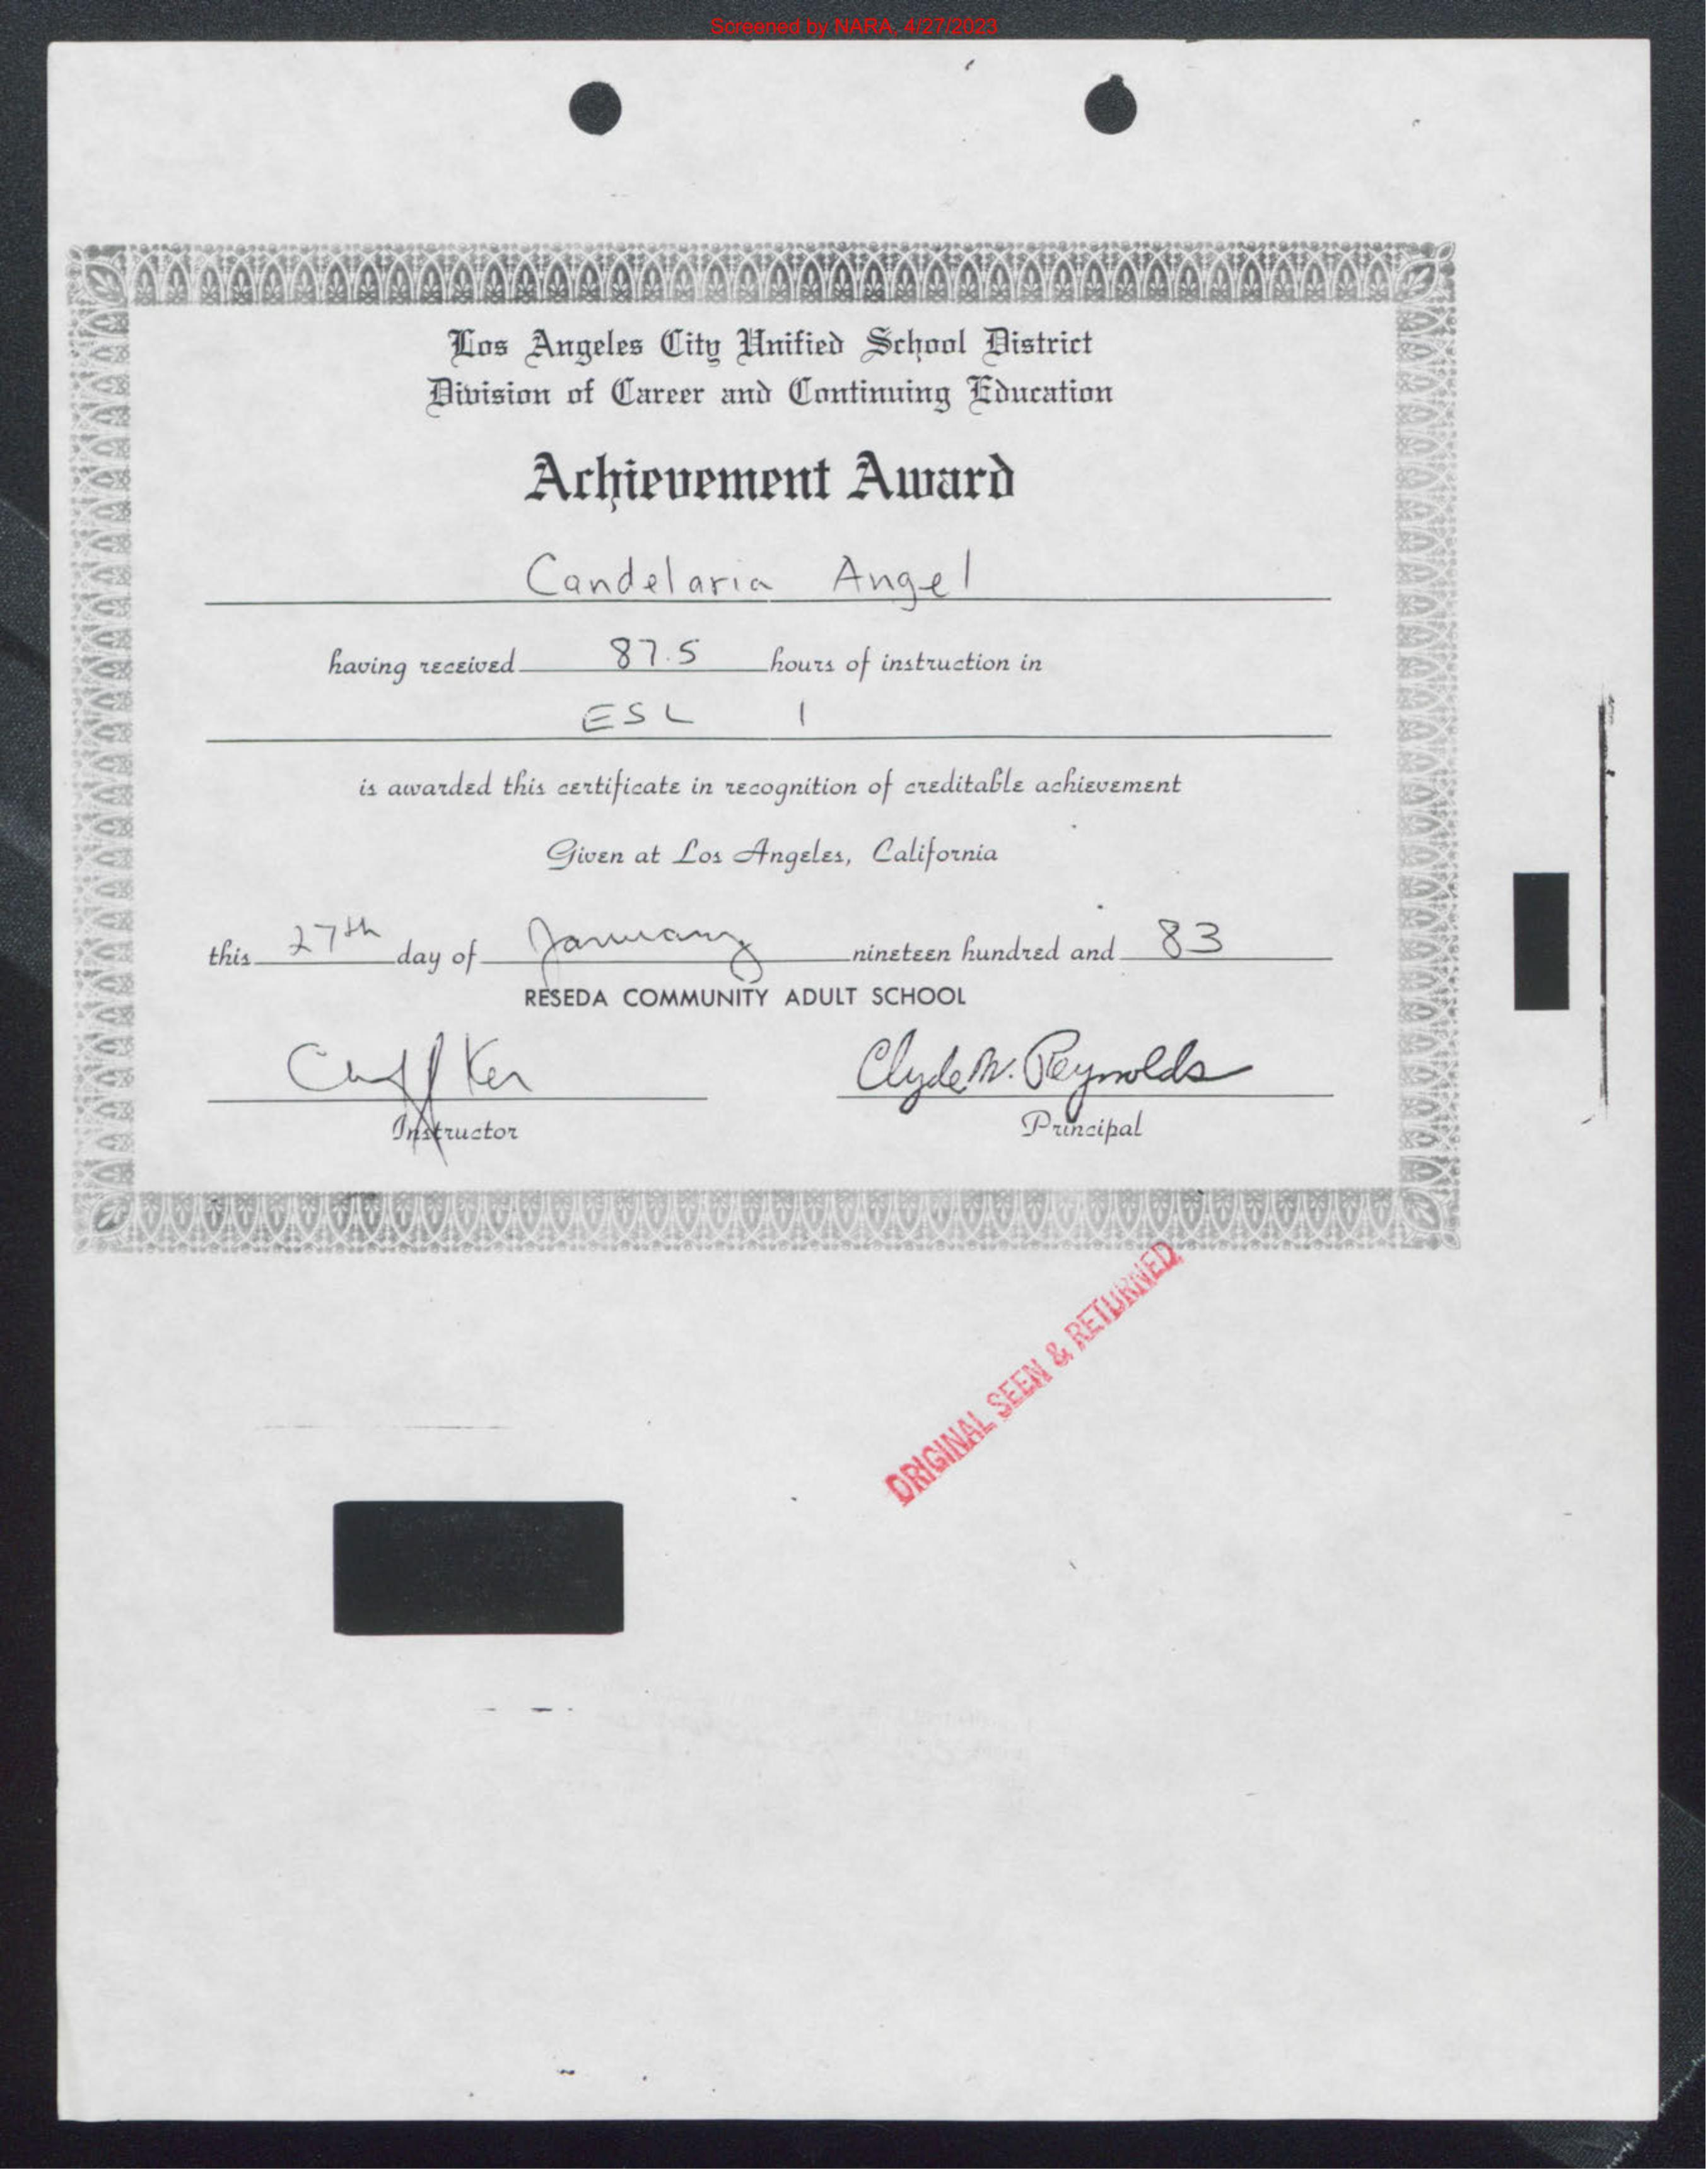 Screened by NARA, 4/27/2023
Los Angeles City Unified School District
Division of Career and Continuing Education
Achievement Award
Candelaria Angel
having received 87.5 hours of instruction in
ESL 1
is awarded this certificate in recognition of creditable achievement
Given at Los Angeles, California
this 27th day of January nineteen hundred and 83
RESEDA COMMUNITY ADULT SCHOOL
Ker Clyde W. Reynolds
Instructor Principal
ORIGINAL SEEN & RETURNED